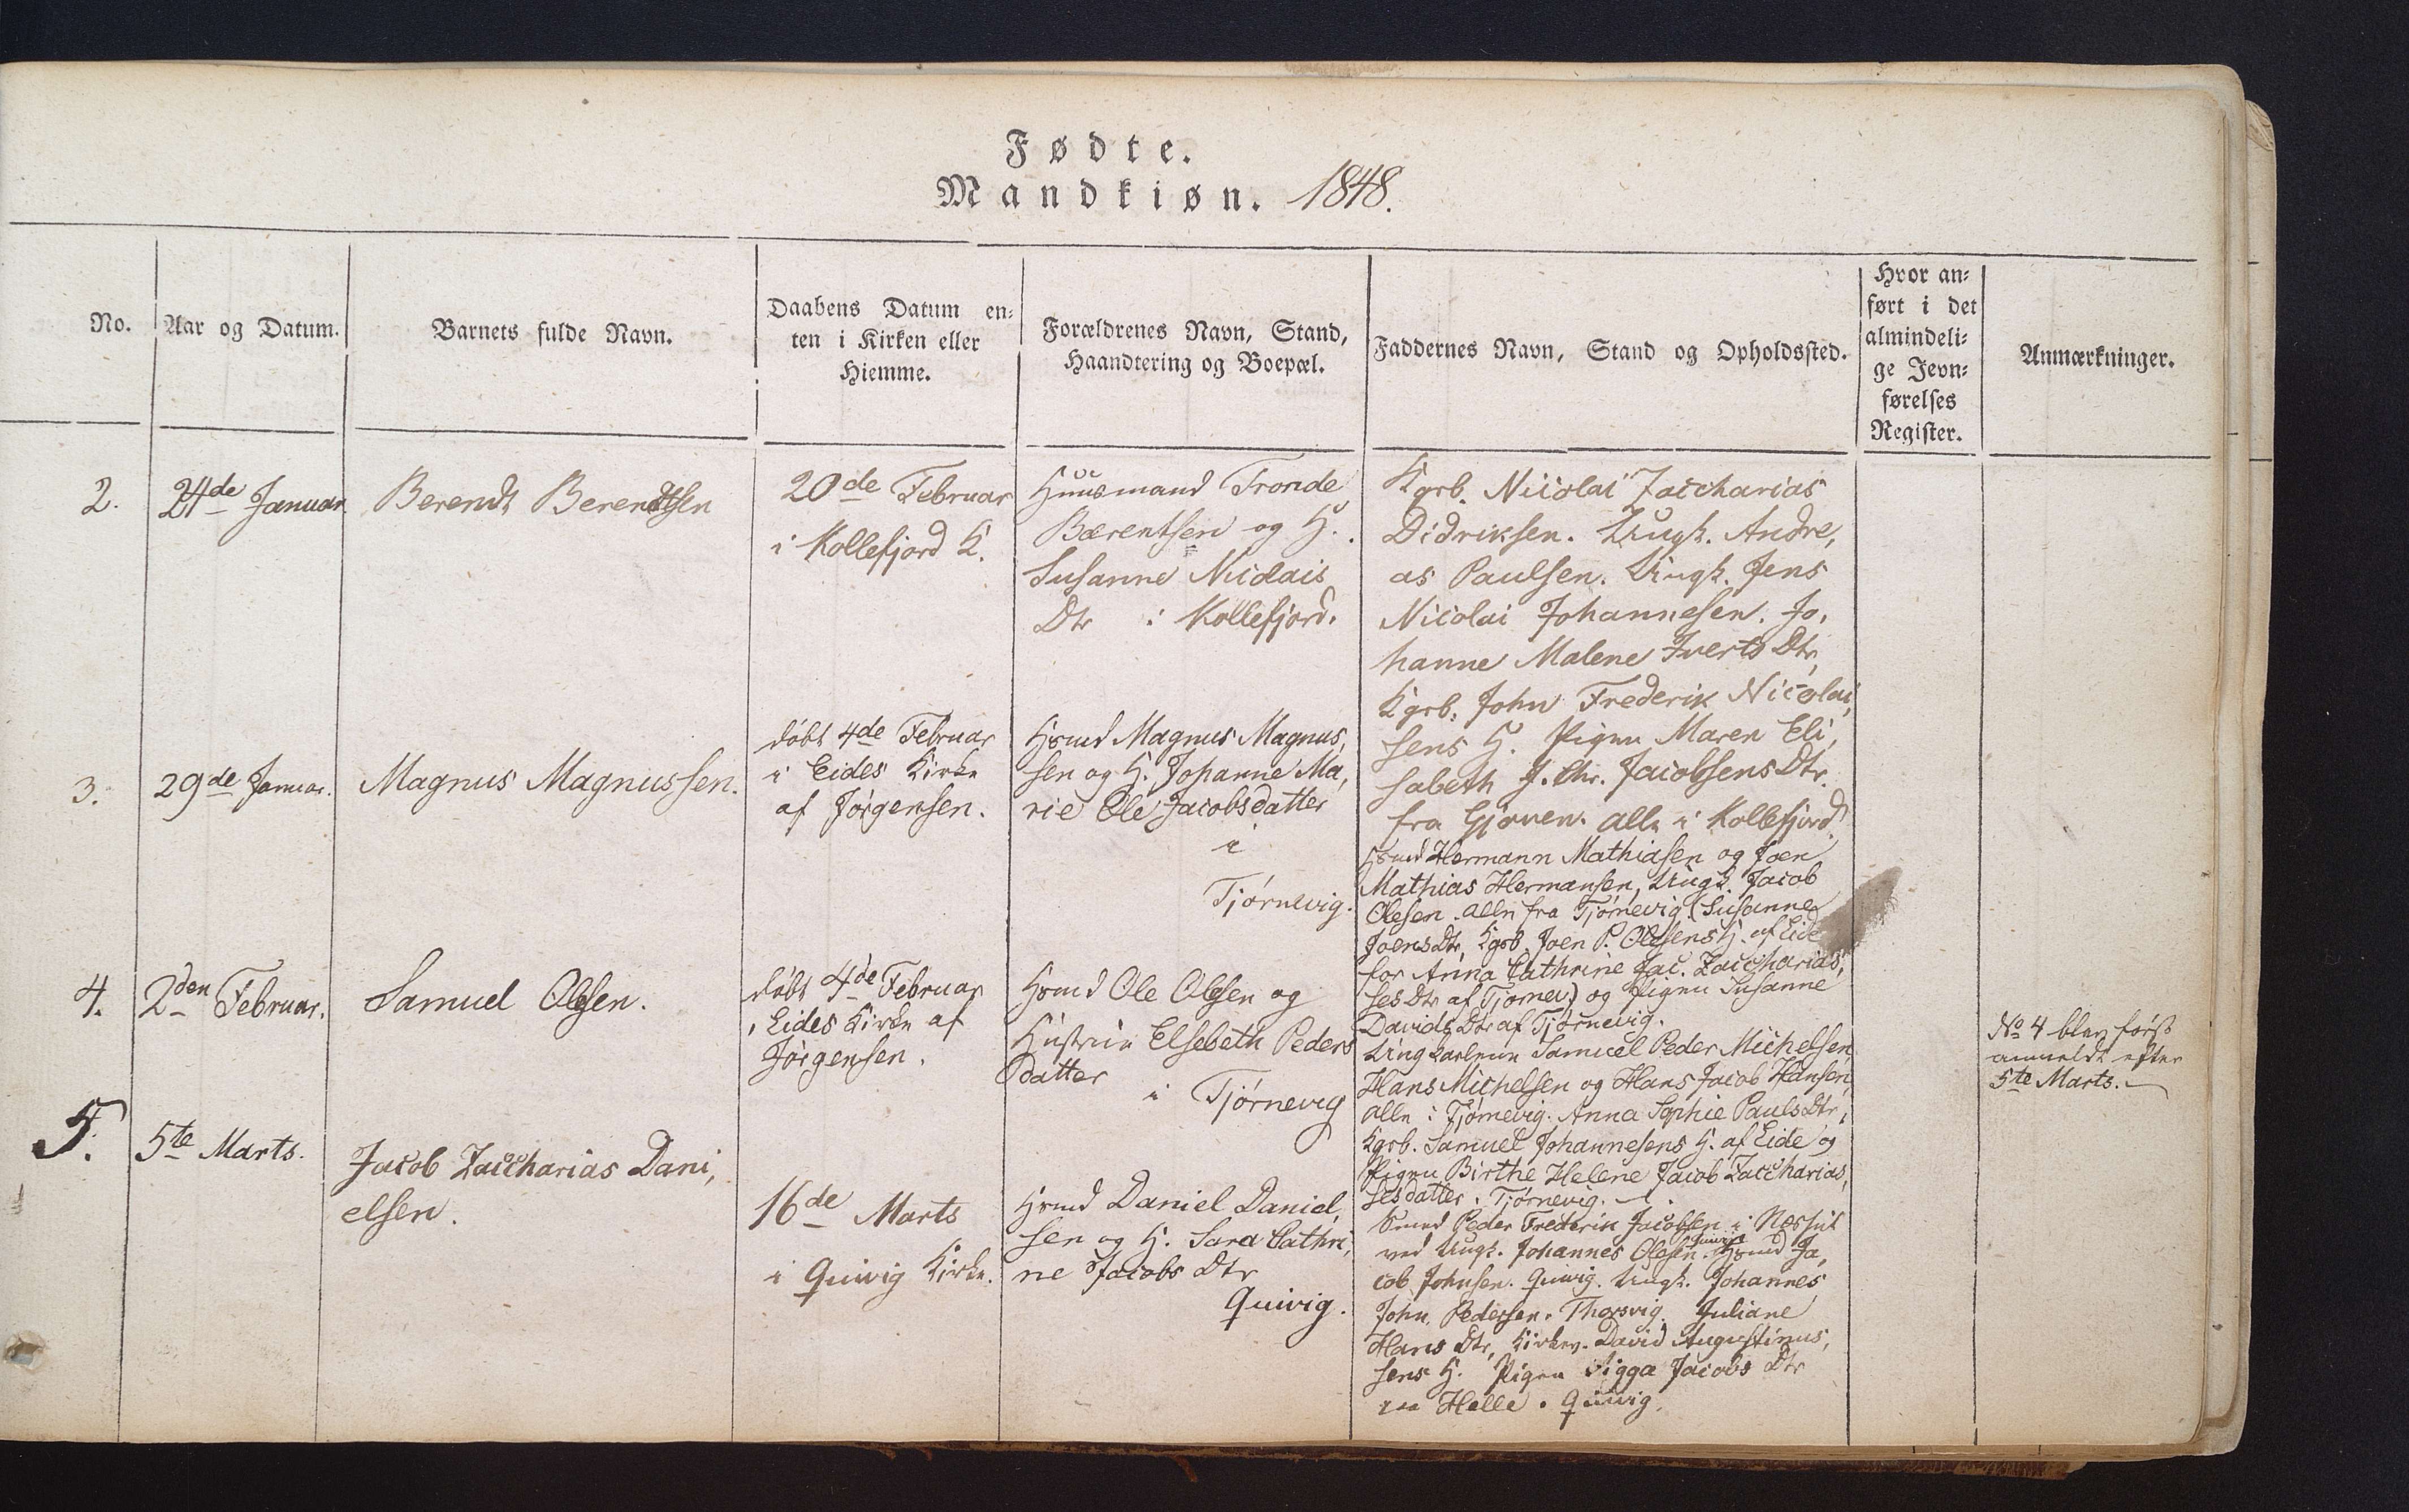 Fødte.
Mandkiøn. 1848.
No.
Aar og Datum.
Barnets fulde Navn.
Daabens Datum en-
ten i Kirken eller
Hiemme.
Forældrenes Navn, Stand,
Haandtering og Boepæl.
Faddernes Navn, Stand og Opholdssted.
Hvor an-
ført i det
almindeli-
ge Jevn-
førelses
Register.
Anmærkninger.
2.
24de Januar
Berendt Berendtsen
20de Februar
i Kollefjord K.
Huusmand Tronde
Bærentsen og H.
Susanne Nicolais
Dtr i Kollefjord.
Kgsb. Nicolai Zaccharias
Didriksen. Ungk. Andre,
as Paulsen. Ungk. Jens
Nicolai Johannesen. Jo,
hanne Malene Iverts Dtr,
Kgsb. John Frederik Nicolai,
sens H. Pigen Maren Eli,
sabeth J. Chr. Jacobsens Dtr.
fra Gjænen. alle i Kollefjord
3.
29de Januar.
Magnus Magnussen.
døbt 4de Februar
i Eides Kirke
af Jørgensen.
Hsmd Magnus Magnus,
sen og H. Johanne Ma,
rie Ole Jacobsdatter
i
Tjørnevig.
Hsmd Hermann Mathiasen og Joen
Mathias Hermansen, Ungk. Jacob
Olesen. alle fra Tjørnevig (Susanne
Joens Dtr, Kgsb. Joen P. Olesens H. af Eide
for Anna Cathrine Jac. Zaccharias,
ses Dtr af Tjørnev.) og Pigen Susanne
Davids Dtr af Tjørnevig.
4.
2den Februar.
Samuel Olesen.
døbt 4de Februar
i Eides Kirke af
Jørgensen.
Hsmd Ole Olesen og
Hustrue Elsebeth Peders
datter
i Tjørnevig
Ungkarlene Samuel Peder Michelsen,
Hans Michelsen og Hans Jacob Hansen,
alle i Tjørnevig. Anna Sophie Pauls Dtr,
Kgsb. Samuel Johannesens H. af Eide og
Pigen Birthe Helene Jacob Zaccharias,
sesdatter. Tjørnevig.
No 4 blev først
anmeldt efter
5te Marts.
5.
5te Marts.
Jacob Zaccharias Dani,
elsen.
16de Marts
i Quivig Kirke.
Hsmd Daniel Daniel,
sen og H. Sara Cathri,
ne Jacobs Dtr
Quivig.
Smed Peder Frederik Jacobsen i Næssit
ved Ungk. Johannes Olesen. Hsmd Ja,
cob Johnsen. Quivig. Ungk. Johannes
John. Pedersen. Thorsvig. Juliane
Hans Dtr, Kirkev. David Augustinus,
sens H. Pigen Sigga Jacobs Dtr
Helle. Quivig.